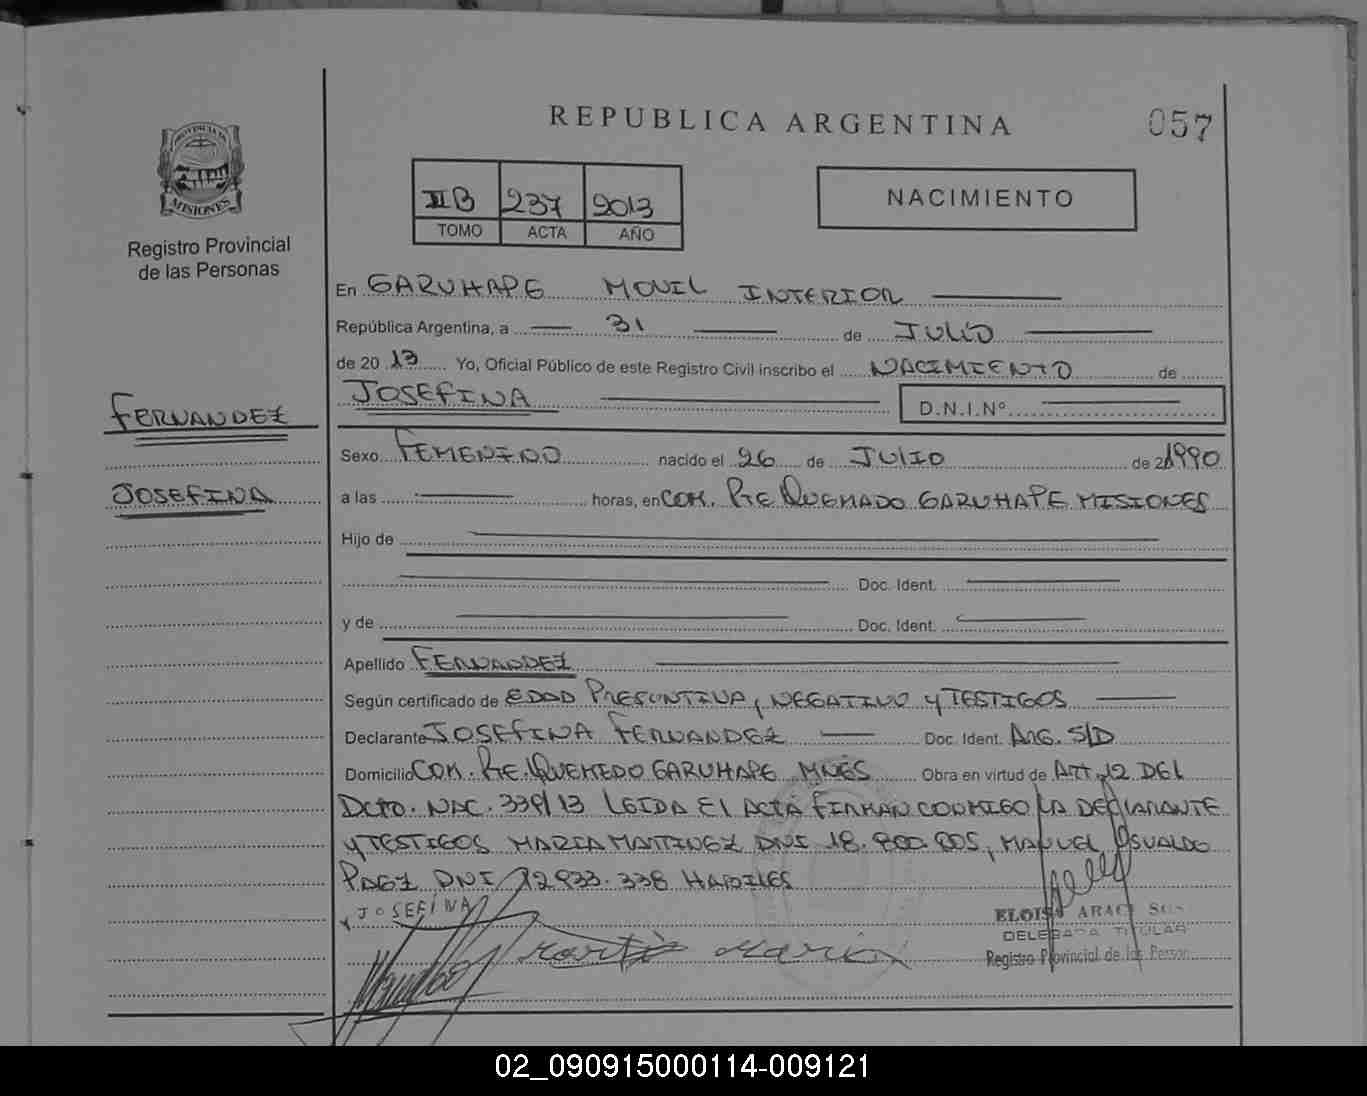 REPUBLICA ARGENTINA
057
PROVINCIA DE
MISIONES
Registro Provincial
de las Personas
IIB 237 2013
TOMO ACTA AÑO
NACIMIENTO
En GARUHAPE MOVIL INTERIOR
República Argentina, a 31 de JULIO
de 20 13 Yo, Oficial Público de este Registro Civil inscribo el NACIMIENTO de
JOSEFINA D.N.I.Nº
FERNANDEZ
JOSEFINA
Sexo FEMENINO nacido el 26 de JULIO de 1990
a las horas, en COM. PTE QUEMADO GARUHAPE MISIONES
Hijo de
Doc. Ident.
y de Doc. Ident.
Apellido FERNANDEZ
Según certificado de EDAD PRESUNTIVA, NEGATIVO Y TESTIGOS
Declarante JOSEFINA FERNANDEZ Doc. Ident. ARG. S/D
Domicilio COM. PTE. QUEMEDO GARUHAPE MNES Obra en virtud de ART. 12 DEL
DCTO. NAC. 339/13 LEIDA El ACTA FIRMAN CONMIGO LA DEClARANTE
Y TESTIGOS MARIA MARTINEZ DNI 18. MANUEL OSVALDO
PAEZ DNI 12933.338 HABILES
JOSEFINA
ELOISA
DELEGADA TITULAR
Registro Provincial de las Person
02_090915000114-009121